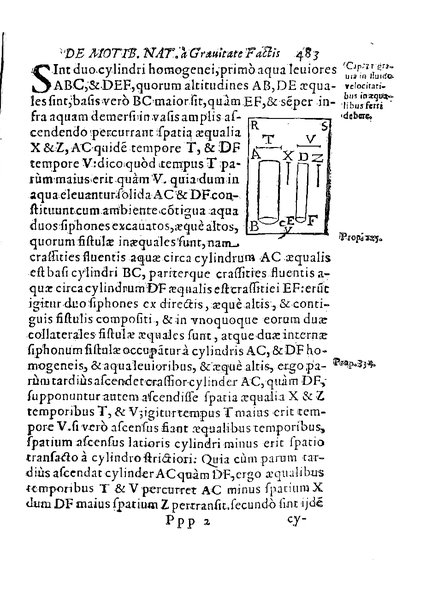 DE MOTIB. NAT. à Grauitate Factis 483
SInt duo cylindri homogenei, primò aqua leuiores
ABC, & DEF, quorum altitudines AB, DE æqua-
les sint; basis verò BC maior sit, quàm EF, & sẽper in-
fra aquam demersi in vasis amplis as-
cendendo percurrant spatia æqualia
X & Z, AC quidẽ tempore T, & DF
tempore V: dico quòd tempus T pa-
rùm maius erit quàm V. quia dum in
aqua eleuantur solida AC & DF con-
stituunt cum ambiente cõtigua aqua
duos siphones excauatos, æquè altos,
quorum fistulæ inæquales sunt, nam
crassities fluentis aquæ circa cylindrum AC æqualis
est basi cylindri BC, pariterque crassities fluentis a-
quæ circa cylindrum DF æqualis est crassitiei EF: erũt
igitur duo siphones ex directis, æquè altis, & conti-
guis fistulis compositi, & in vnoquoque eorum duæ
collaterales fistulæ æquales sunt, atque duæ internæ
siphonum fistulæ occupãtur à cylindris AC, & DF ho-
mogeneis, & aqua leuioribus, & æquè altis, ergo pa-
rùm tardiùs ascendet crassior cylinder AC, quàm DF,
supponuntur autem ascendisse spatia æqualia X & Z
temporibus T, & V; igitur tempus T maius erit tem-
pore V. si verò ascensus fiant æqualibus temporibus,
spatium ascensus latioris cylindri minus erit spatio
transacto à cylindro strictiori: Quia cùm parum tar-
diùs ascendat cylinder AC quàm DF, ergo æqualibus
temporibus T & V percurret AC minus spatium X
dum DF maius spatium Z pertransit. secundò sint ijdẽ
Ppp 2 cy-
Cap. 11 gra-
uia in fluido
velocitati-
bus inæqua-
libus ferri
debere.
R S
T V
A X D Z
B C E F
y
Prop. 225.
Prop. 334.